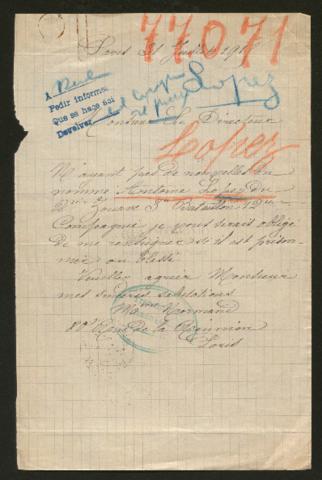 77071
Paris 21 Juillet 19
A
Pedir informe
Que se haga
Devolver
Lopez
Monsieur Le Directeur
Lopez
N'ayant pas de nouvelles du
nommé Antoine Lopez du
2me Zouave 5e Bataillon
Compagnie je vous serais obligé
de me renseigner si il est prison-
nier ou blessé
Veuillez agréer Monsieur
mes sinceres salutations
Mme Normand
80 Rue de la Réunion
Paris